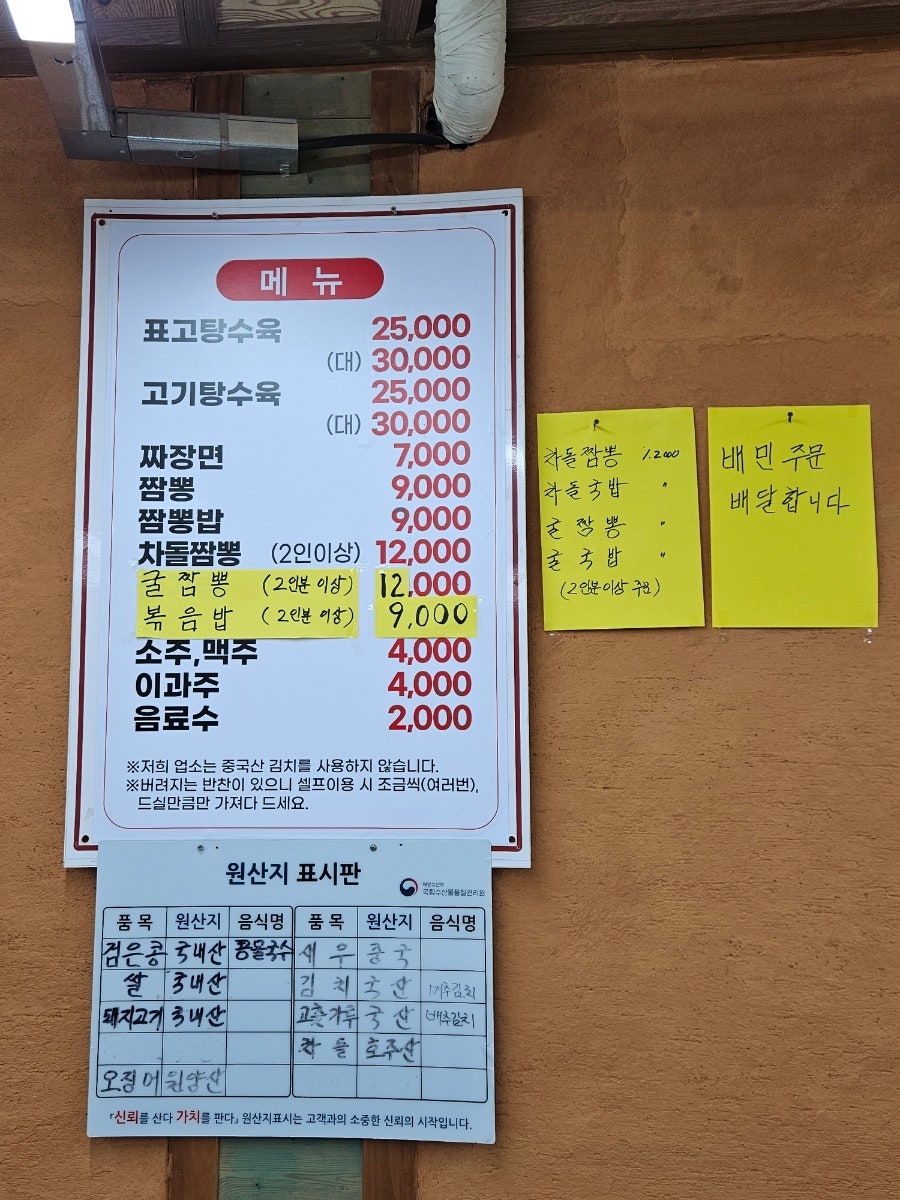 메 뉴
표고탕수육 25,000
(대) 30,000
고기탕수육 25,000
(대) 30,000
짜장면 7,000
짬뽕 9,000
짬뽕밥 9,000
차돌짬뽕 (2인이상) 12,000
굴짬뽕 (2인분이상) 12,000
볶음밥 (2인분 이상) 9,000
소주,맥주 4,000
이과주 4,000
음료수 2,000
※저희 업소는 중국산 김치를 사용하지 않습니다.
※버려지는 반찬이 있으니 셀프이용 시 조금씩(여러번),
드실만큼만 가져다 드세요.
차돌짬뽕 12000
차돌국밥 〃
굴짬뽕 〃
굴국밥 〃
(2인분이상 주문)
배민 주문
배달합니다
원산지 표시판
해양수산부
국립수산물품질관리원
품목 원산지 음식명 품목 원산지 음식명
검은콩 국내산 콩물국수 새우 중국
쌀 국내산 김치 국산 배추김치
돼지고기 국내산 고춧가루 국산 배추김치
차돌 호주산
오징어 원양산
「신뢰를 산다 가치를 판다」 원산지표시는 고객과의 소중한 신뢰의 시작입니다.